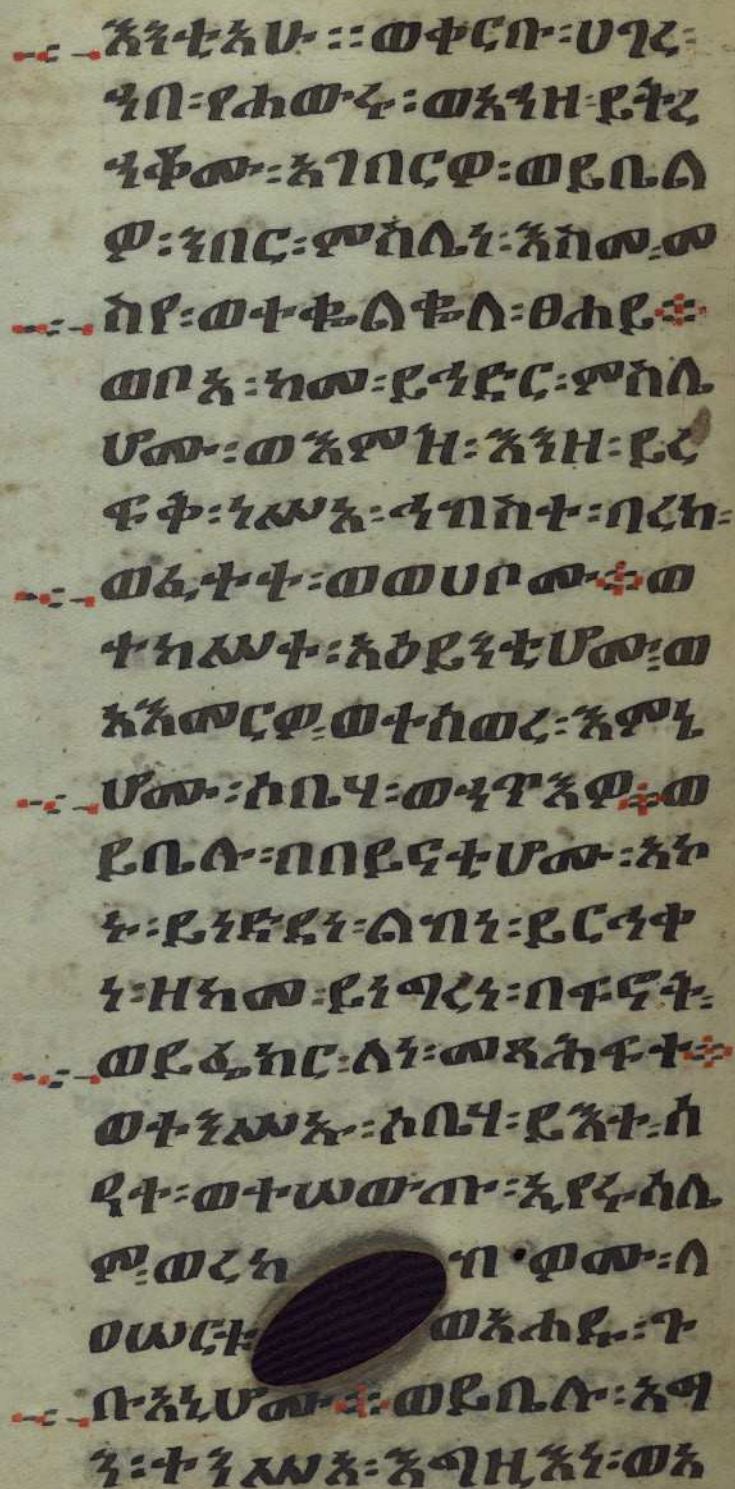 እንቲአሁ ፡፡ ወቀርቡ ፡ ሀገረ ፡
ኀበ ፡ የሐውሩ ፡ ወእንዘ ፡ ይትረ
ኀቆሙ ፡ አገበርዎ ፡ ወይቤል
ዎ ፡ ንበር ፡ ምስሌነ ፡ እስመ ፡ መ
ስየ ፡ ወተቈልቈለ ፡ ፀሐይ ፨
ወቦአ ፡ ከመ ፡ ይኅድር ፡ ምስሌ
ሆሙ ፡ ወእምዝ ፡ እንዘ ፡ ይረ
ፍቅ ፡ ነሥአ ፡ ኅብስተ ፡ ባረከ ፡
ወፈተተ ፡ ወወሀቦሙ ፨ ወ
ተከሥተ ፡ አዕይንቲሆሙ ፡ ወ
አእመርዎ ፡ ወተሰወረ ፡ እምኔ
ሆሙ ፡ ሶቤሃ ፡ ወኃጥእዎ ፨ ወ
ይቤሉ ፡ በበይናቲሆሙ ፡ አኮ
ኑ ፡ ይነድደነ ፡ ልብነ ፡ ይርኅቀ
ነ ፡ ዘከመ ፡ ይነግረነ ፡ በፍኖት ፡
ወይፌክር ፡ ለነ ፡ መጻሕፍተ ፨
ወተንሥኡ ፡ ሶቤሃ ፡ ይእተ ፡ ሰ
ዓተ ፡ ወተሠውጡ ፡ ኢየሩሳሌ
ም ፡ ወረከ ብዎሙ ፡ ለ
ዐሠርቱ ወአሐዱ ፡ ጉ
ቡአኒሆሙ ፨ ወይቤሉ ፡ አማ
ን ፡ ተንሥአ ፡ እግዚእነ ፡ ወአ